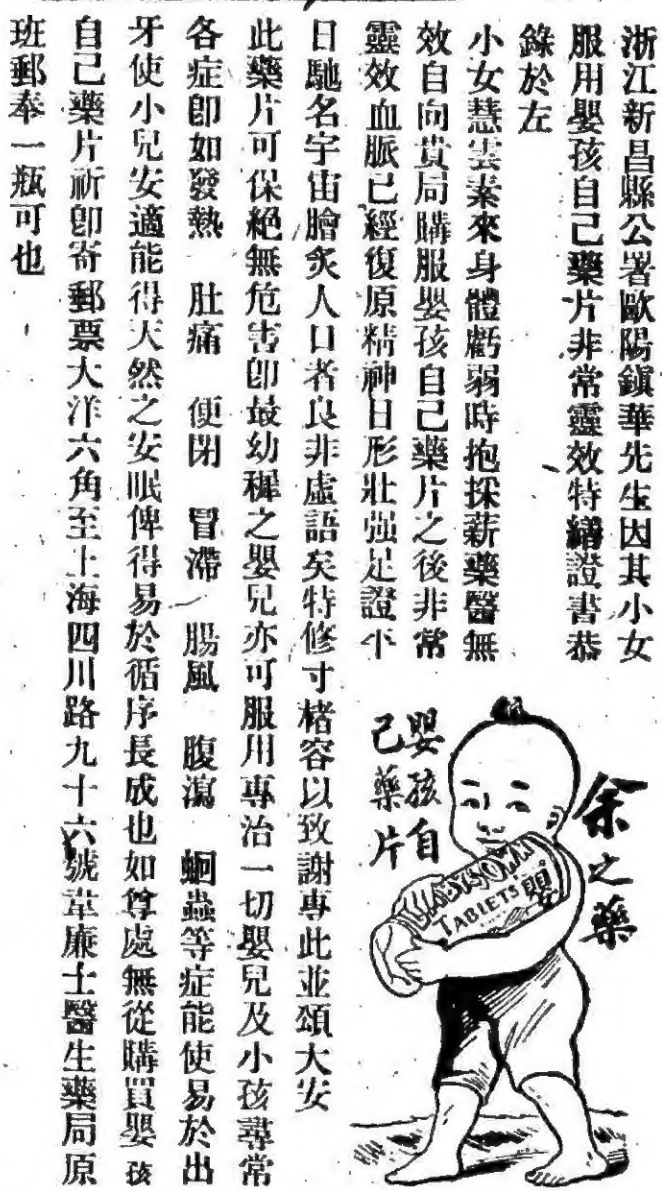 浙江新昌縣公署歐陽鎮華先生因其小女
服用嬰孩自己藥片非常靈效特繕證書恭
錄於左
小女慧雲素來身體虧弱時抱採薪藥醫無
效自向貴局購服嬰孩自己藥片之後非常
靈效血脈已經復原精神日形壯强足證平
日馳名宇宙膾炙人口者良非虛語矣特修寸楮容以致謝專此並頌大安
此藥片可保絕無危害卽最幼穉之嬰兒亦可服用專治一切嬰兒及小孩尋常
各症卽如發熱 肚痛 便閉 冒滯 腸風 腹瀉 蛔蟲等症能使易於出
牙使小兒安適能得天然之安眠俾得易於循序長成也如尊處無從購買嬰孩
自己藥片祈卽寄郵票大洋六角至上海四川路九十六號韋廉士醫生藥局原
班郵奉一瓶可也
余之藥
嬰孩自
己藥片
BABY'S OWN
TABLETS
嬰